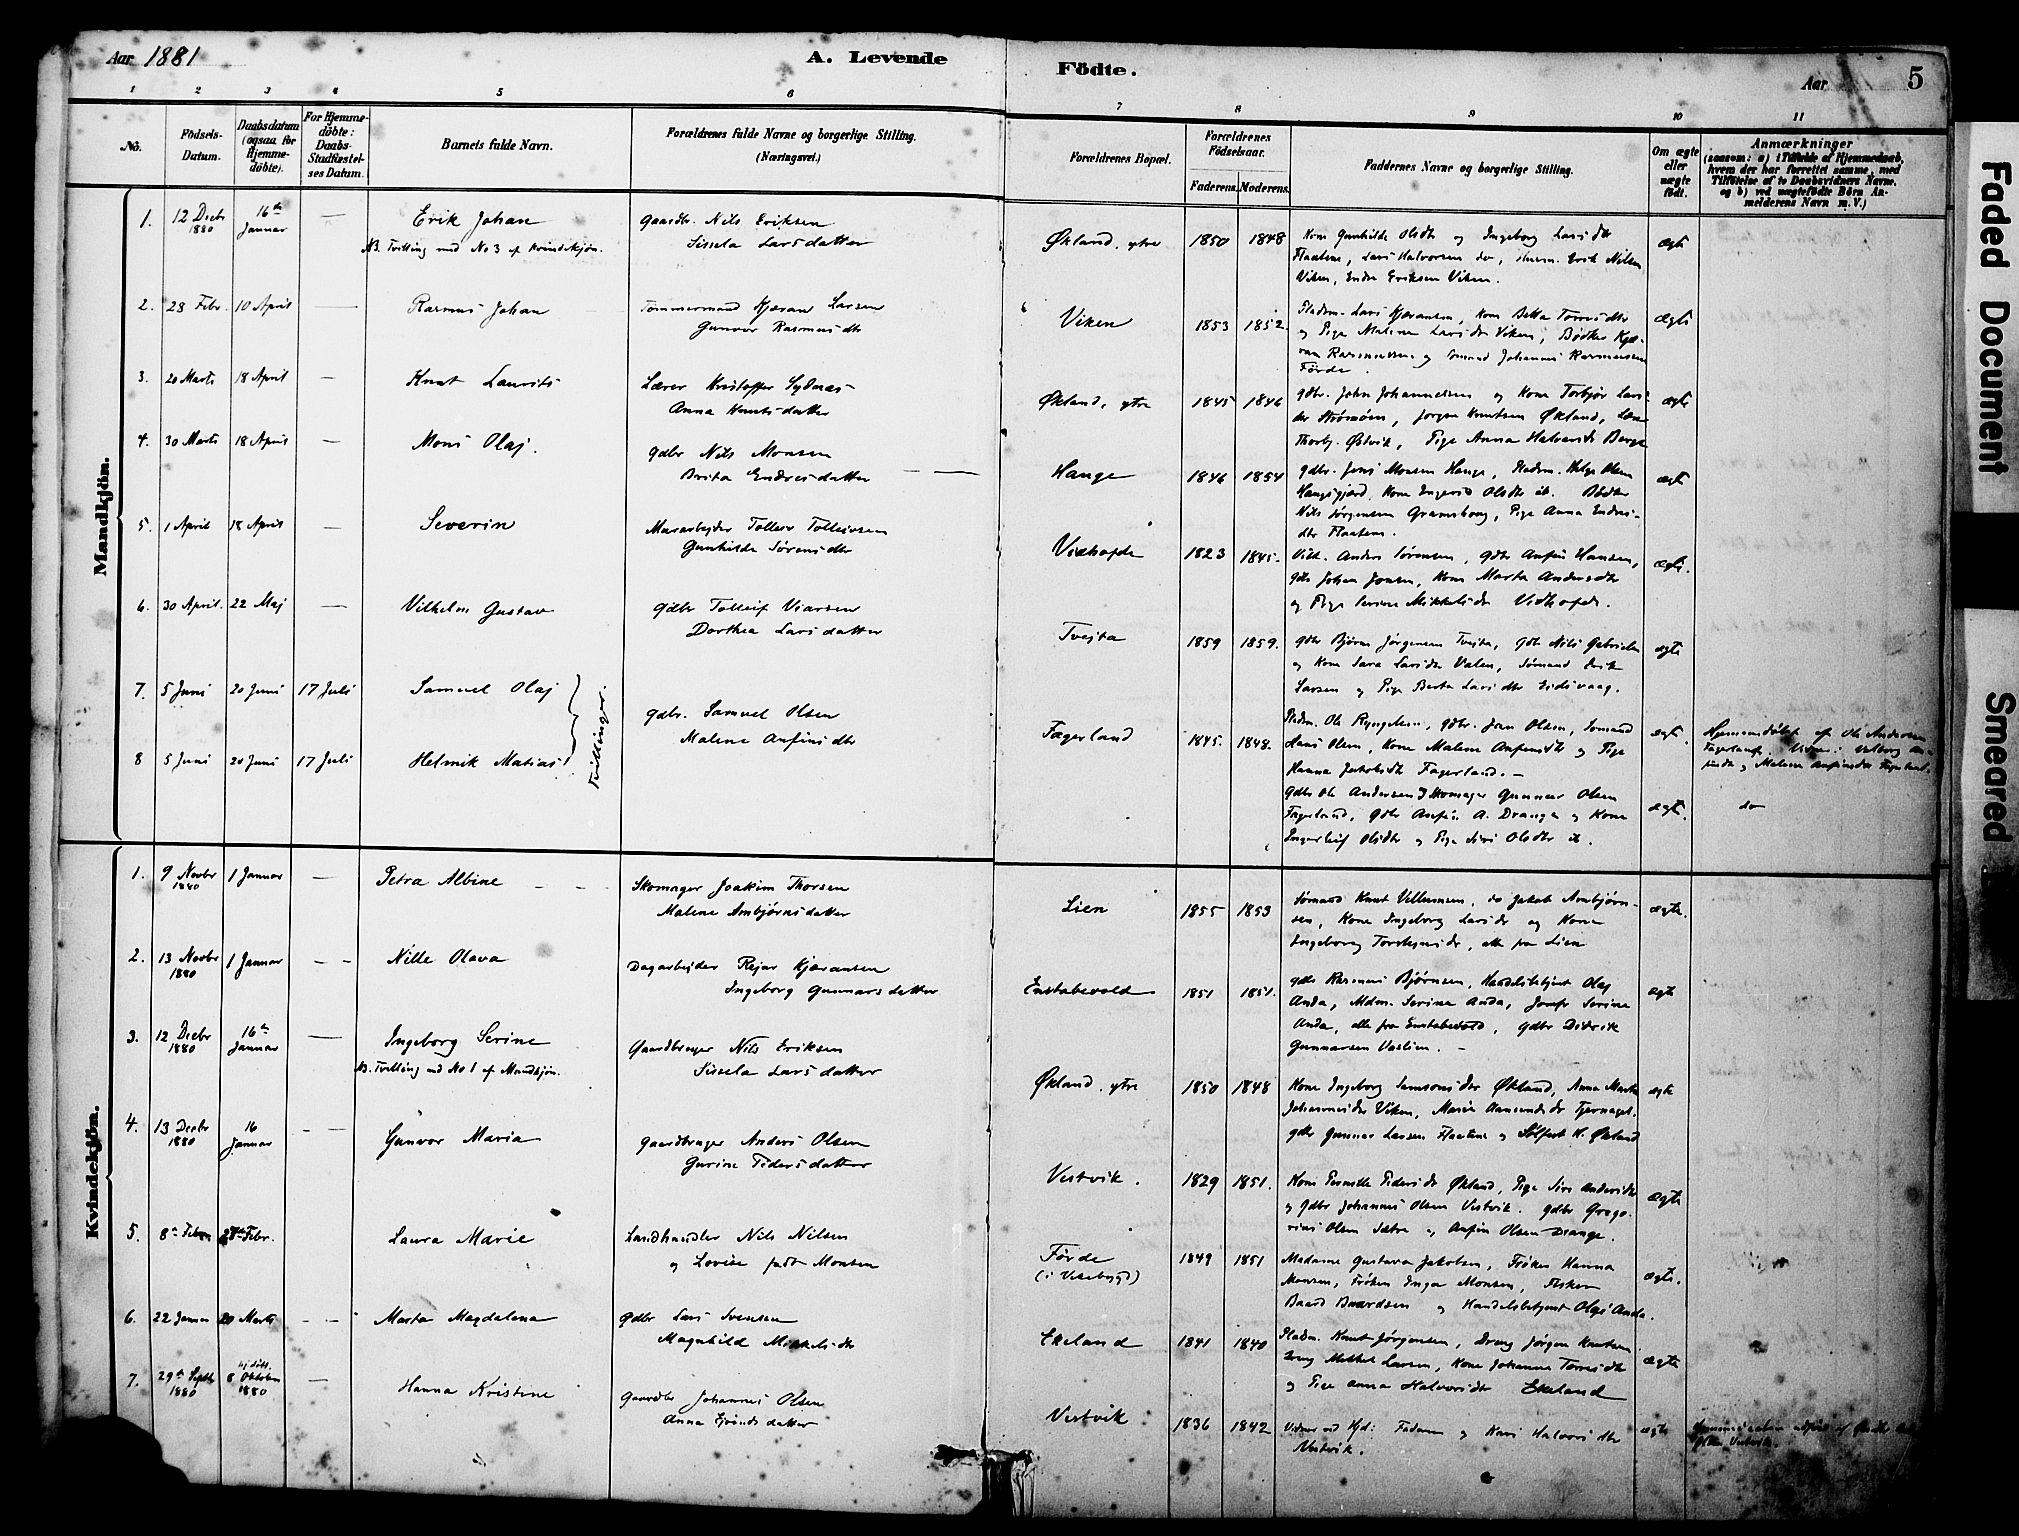 Aar 1881
A. Levende
Födte.
Aar
5
1 2 3 4 5 6 7 8 9 10 11
No.
Födsels-
Datum.
Daabsdatum
(ogsaa for
Hjemme-
döbte).
For Hjemme-
döbte:
Daabs-
Stadfæstel-
ses Datum.
Barnets fulde Navn.
Forældrenes fulde Navne og borgerlige Stilling.
(Næringsvei.)
Forældrenes Bopæl.
Forældrenes
Födselsaar.
Faderens. Moderens.
Faddernes Navne og borgerlige Stilling.
Om ægte
eller
uægte
födt.
Anmærkninger
(saasom: a) i Tilfælde af Hjemmedaab,
hvem der har forrettet samme, med
Tilföielse af to Daabsvidners Navne,
og b) ved uægtefödte Börn An-
melderens Navn m. V.)
Mandkjön.
1. 12 Decbr 1880 16de Januar — Erik Johan
NB. Tvilling med No 3 af Kvindekjön.
Gaardbr. Nils Eriksen
Sissela Larsdatter
Økland, ytre 1850 1848
Kone Gunhilde Olsdtr og Ingeborg Larsdtr
Flaatene, Lars Halvorsen do, Erik Nilsen
Viken, Endre Eriksen Viken.
ægte
2. 28 Febr. 10 April — Rasmus Johan
Tömmermand Kjæran Larsen
Gunvor Rasmusdtr
Viken 1853 1852
Pladsm. Lars Kjæransen, Kone Torresdtr
og Pige Malene Larsdtr Viken, Bødker Kjæ-
ran Rasmussen og Sömand Johannes Rasmussen
Förde.
ægte
3. 20 Marts 18 April — Knut Laurits
Lærer Kristoffer Sydnæs
Anna Knutsdatter
Økland, ytre 1845 1846
gdbr. John Johannessen og Kone Torbjør Lars-
dtr Strömöen, Jørgen Knutsen Økland,
Thorbj. Østvik, Pige Anna Halvorsdtr Berge
ægte
4. 30 Marts 18 April — Mons Olaj.
gdbr Nils Monsen
Brita Endresdatter
Hauge 1846 1854
gdbr. Jens Monsen Hauge, Pladsm. Helge Olsen
Haugsgjærd, Kone Ingerid Olsdtr ib. Bödker
Nils Jørgensen Gramshaug, Pige Anna Endres-
dtr Flaatene.
ægte
5. 1 April 18 April — Severin
Murarbejder Tolleiv Tolleivsen
Gunhilde Sørensdtr
Vidhofde 1823 1845.
Anders Sörensen, Gdbr Anfin Hansen,
gdbr Johan Jonsen, Kone Marta Andersdtr
og Pige Serine Mikkelsdtr Vidhofde.
ægte.
6. 30 April. 22 Maj — Vilhelm Gustav
Gdbr Tolleif Viarsen
Dorthea Larsdatter
Tvejta 1859 1859.
gdbr Björn Jørgensen Tvejta, Gdbr Nils Gabrielsen
og Kone Sara Larsdtr Valen, Sömand Erik
Larsen og Pige Berta Larsdtr Eidsvaag.
ægte
7. 5 Juni 20 Juni 17 Juli Samuel Olaj
8 5 Juni 20 Juni 17 Juli Helmik Matias
Tvillinger.
gdbr. Samuel Olsen
Malene Anfinsdtr
Fagerland 1845. 1848.
Pladsm. Ole Ryngelsen, Gdbr. Jan Olsen, Sömand
Hans Olsen, Kone Malene Anfinsdtr og Pige
Hanna Jakobsdtr Fagerland. —
ægte.
Hjemmedöbt af Ole Andersen
Fagerland.
og Malene Anfinsdtr
Gdbr Ole Andersen og Skomager Gunnar Olsen
Fagerland, Gdbr Anfin A. Drange og Kone
Ingerleif Olsdtr og Pige Siri Olsdtr ib.
ægte.
do
Kvindekjön.
1. 9 Novbr 1880 1 Januar — Petra Albine
Skomager Joakim Thorsen
Malene Ambjörnsdatter
Lien 1855 1853
Sömand Knut Villumsen, do Jakob Ambjörn-
sen, Kone Ingeborg Larsdtr og Kone
Ingeborg Torstensdtr, alle fra Lien
ægte.
2. 13 Novbr 1880 1 Januar — Nille Olava
Dagarbejder Rejar Kjæransen
Ingeborg Gunnarsdatter
Enstabevold 1851 1851.
gdbr Rasmus Björnsen, Handelsbetjent Olaj
Anda, Mdm. Serina Anda, Jomfr Serine
Anda, alle fra Enstabevold, Gdbr Didrik
Gunnarsen Vaslien. —
ægte
3. 12 Decbr 1880 16de Januar — Ingeborg Serine
NB. Tvilling med No 1 af Mandkjön.
Gaardbruger Nils Eriksen
Sissela Larsdatter
Økland, ytre 1850 1848
Kone Ingeborg Samsonsdtr Økland, Anna Marta
Johannesdtr Viken, Marie Aamundsdtr Tjernagel.
gdbr Gunnar Larsen Flaatene og Sölfest H. Økland
ægte
4. 13 Decbr 1880 16 Januar — Gunvor Maria
Gaardbruger Anders Olsen
Gurine Pedersdatter
Vestvik. 1829 1851.
Kone Pernille Pedersdtr Økland, Pige Siri Andersdtr
og Gdbr Johannes Olsen Vestvik. Gdbr Grego-
rius Olsen Sætre og Anfin Olsen Drange.
ægte
5. 8de Febr Febr. Laura Marie
Landhandler Nils Nilsen
og Lovise födt Monsen
Førde
(i Vikebygd)
1849 1851
Madame Gustava Jakobsen, Fröken Hanna
Monsen, Fröken Inga Monsen,
Baard Baardsen og Handelsbetjent Olaj Anda.
ægte.
6. 22 Januar 20 Marts — Marta Magdalena
gdbr Lars Svensen
Magnhild Mikkelsdtr
Ekeland 1841 1840
Pladsm. Knut Jørgensen, Dreng Jørgen Knutsen
Dreng Mikkel Larsen, Kone Johanna Torresdtr
og Pige Anna Halvorsdtr Ekeland
ægte
7. 29de Septbr 1880 hj. döbt. 8 Oktober 1880 — Hanna Kristine
Gaardbr Johannes Olsen
Anna Ejvindsdatter
Vestvik 1836 1842
Vidner ved Hjd: Faderen og Kari Halvorsdtr
Vestvik.
ægte
Vestvik.
Faded Document
Smeared